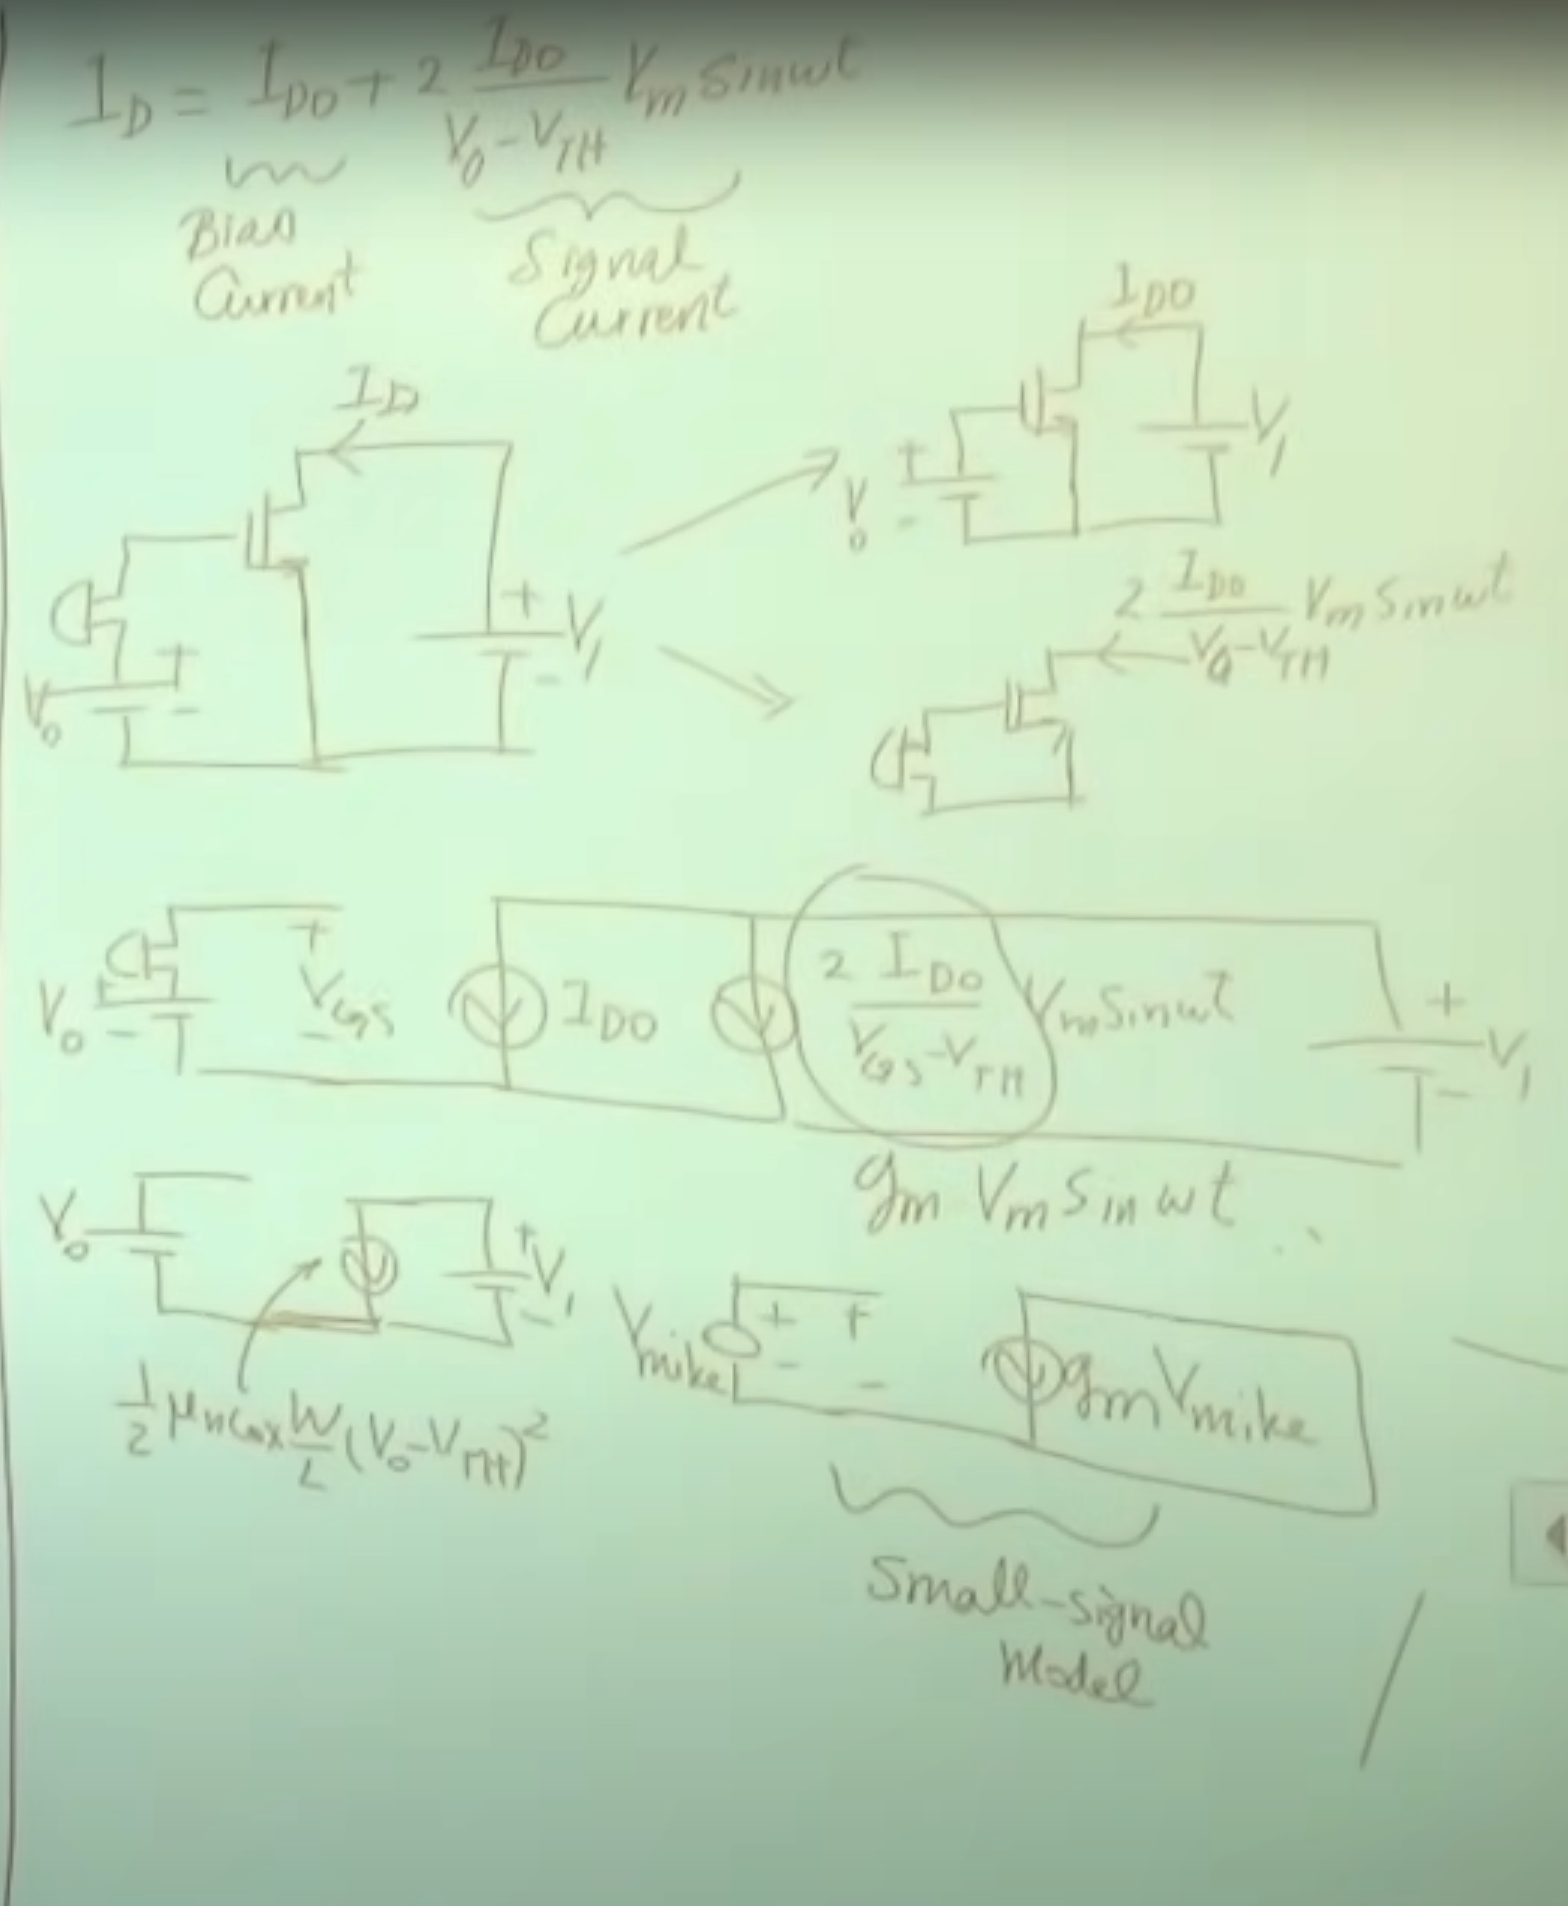 I_D = I_DO + 2 I_DO / (V_0 - V_TH) V_m Sinwt
Bias Current
Signal Current
I_D
V_0 + -
+ V_1 -
I_DO
+ V_0 -
V_1
2 I_DO / (V_0 - V_TH) V_m Sinwt
V_0 + -
+ V_GS -
I_DO
2 I_DO / (V_GS - V_TH) V_m Sinwt
+ V_1 -
g_m V_m Sinwt
V_0
+ V_1 -
1/2 μ_n C_ox W/L (V_0 - V_TH)^2
V_mike + - + -
g_m V_mike
Small-signal
Model